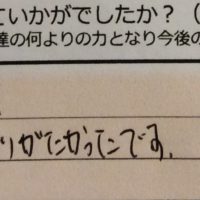 ていかがでしたか？（
達の何よりの力となり今後の
りがたかったです。